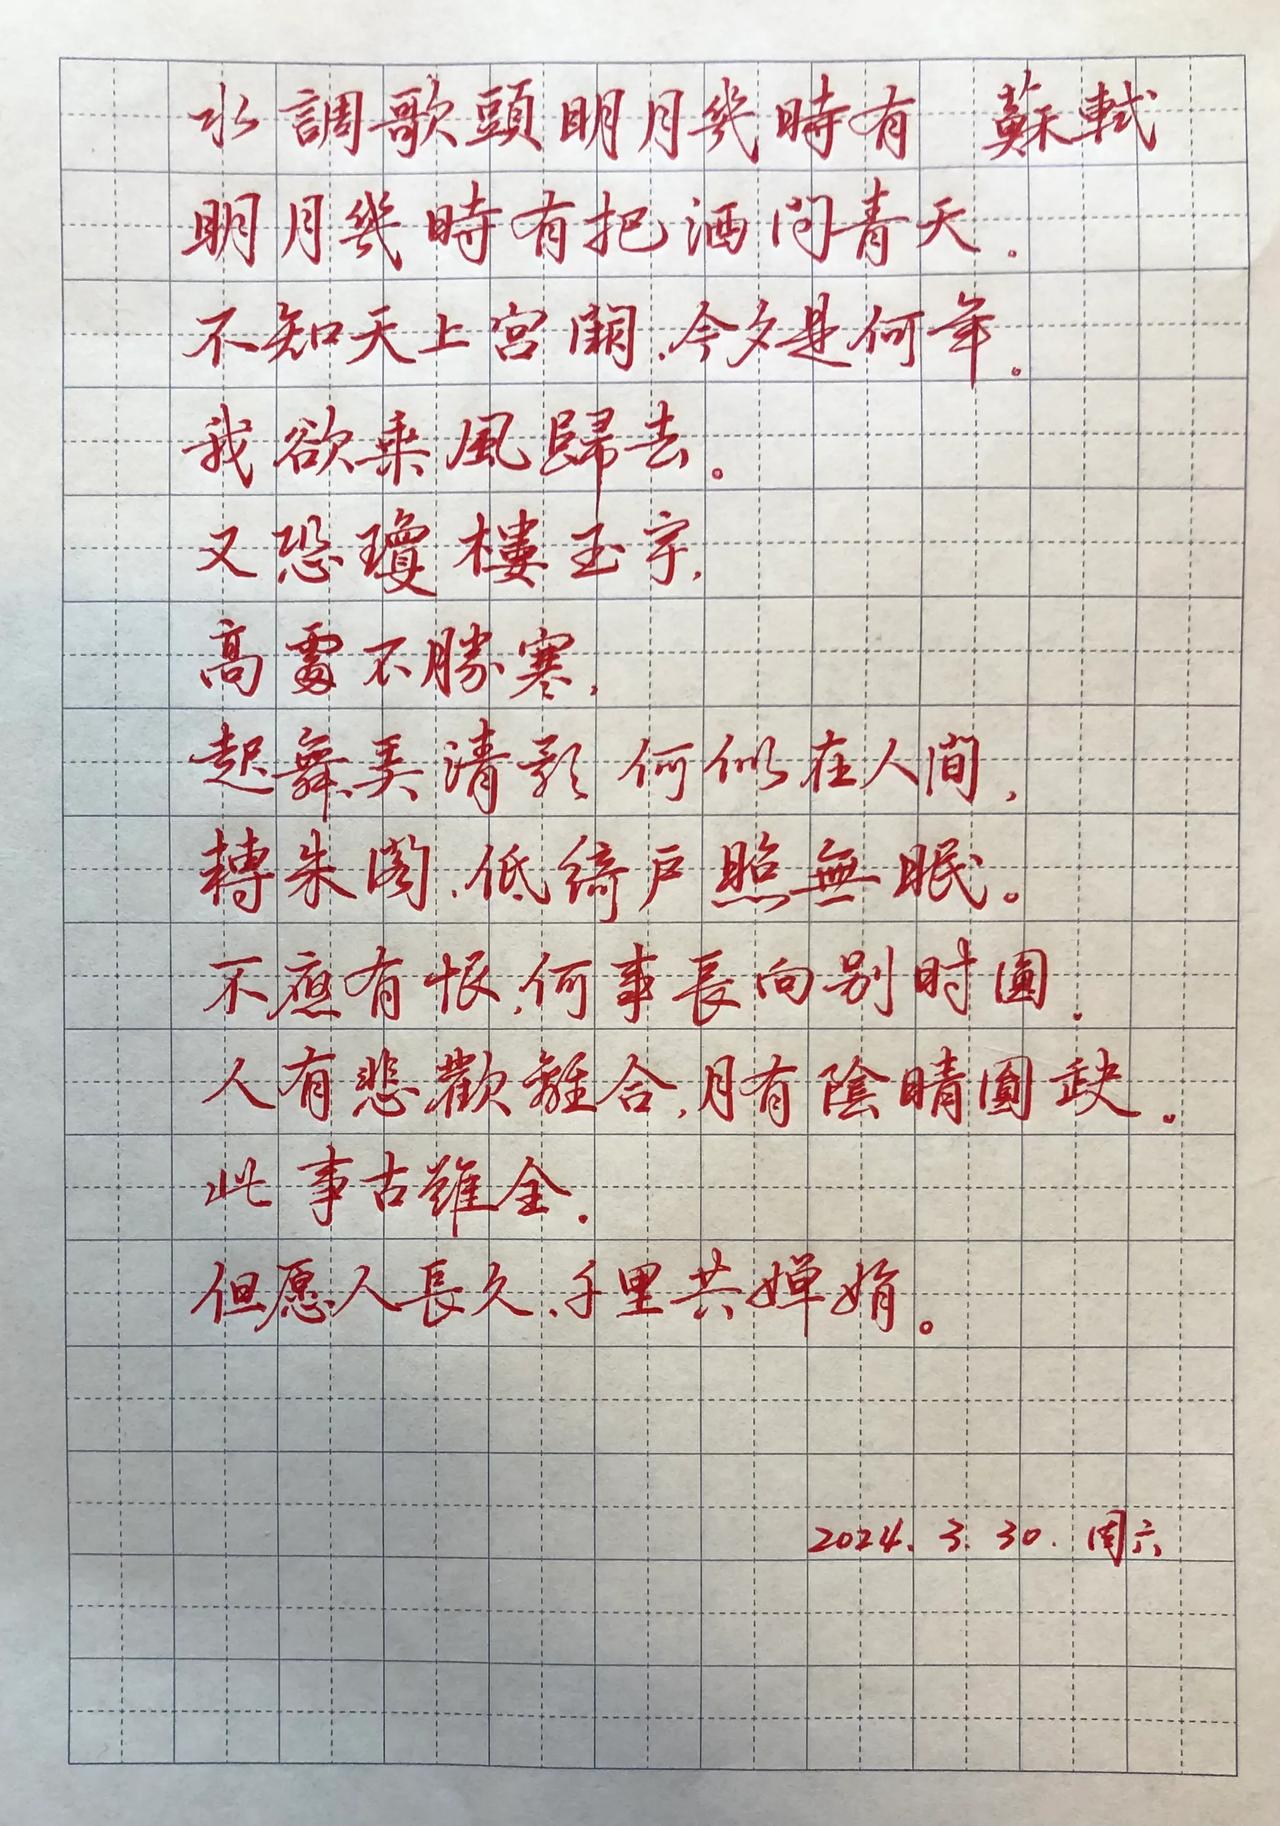 水調歌頭明月幾時有 蘇軾
明月幾時有把酒問青天.
不知天上宮闕,今夕是何年。
我欲乘風歸去。
又恐瓊樓玉宇,
高處不勝寒,
起舞弄清影 何似在人間,
轉朱閣,低綺戶照無眠。
不應有恨,何事長向別时圓.
人有悲歡離合,月有陰晴圓缺。
此事古難全.
但愿人長久,千里共嬋娟。
2024.3.30.周六